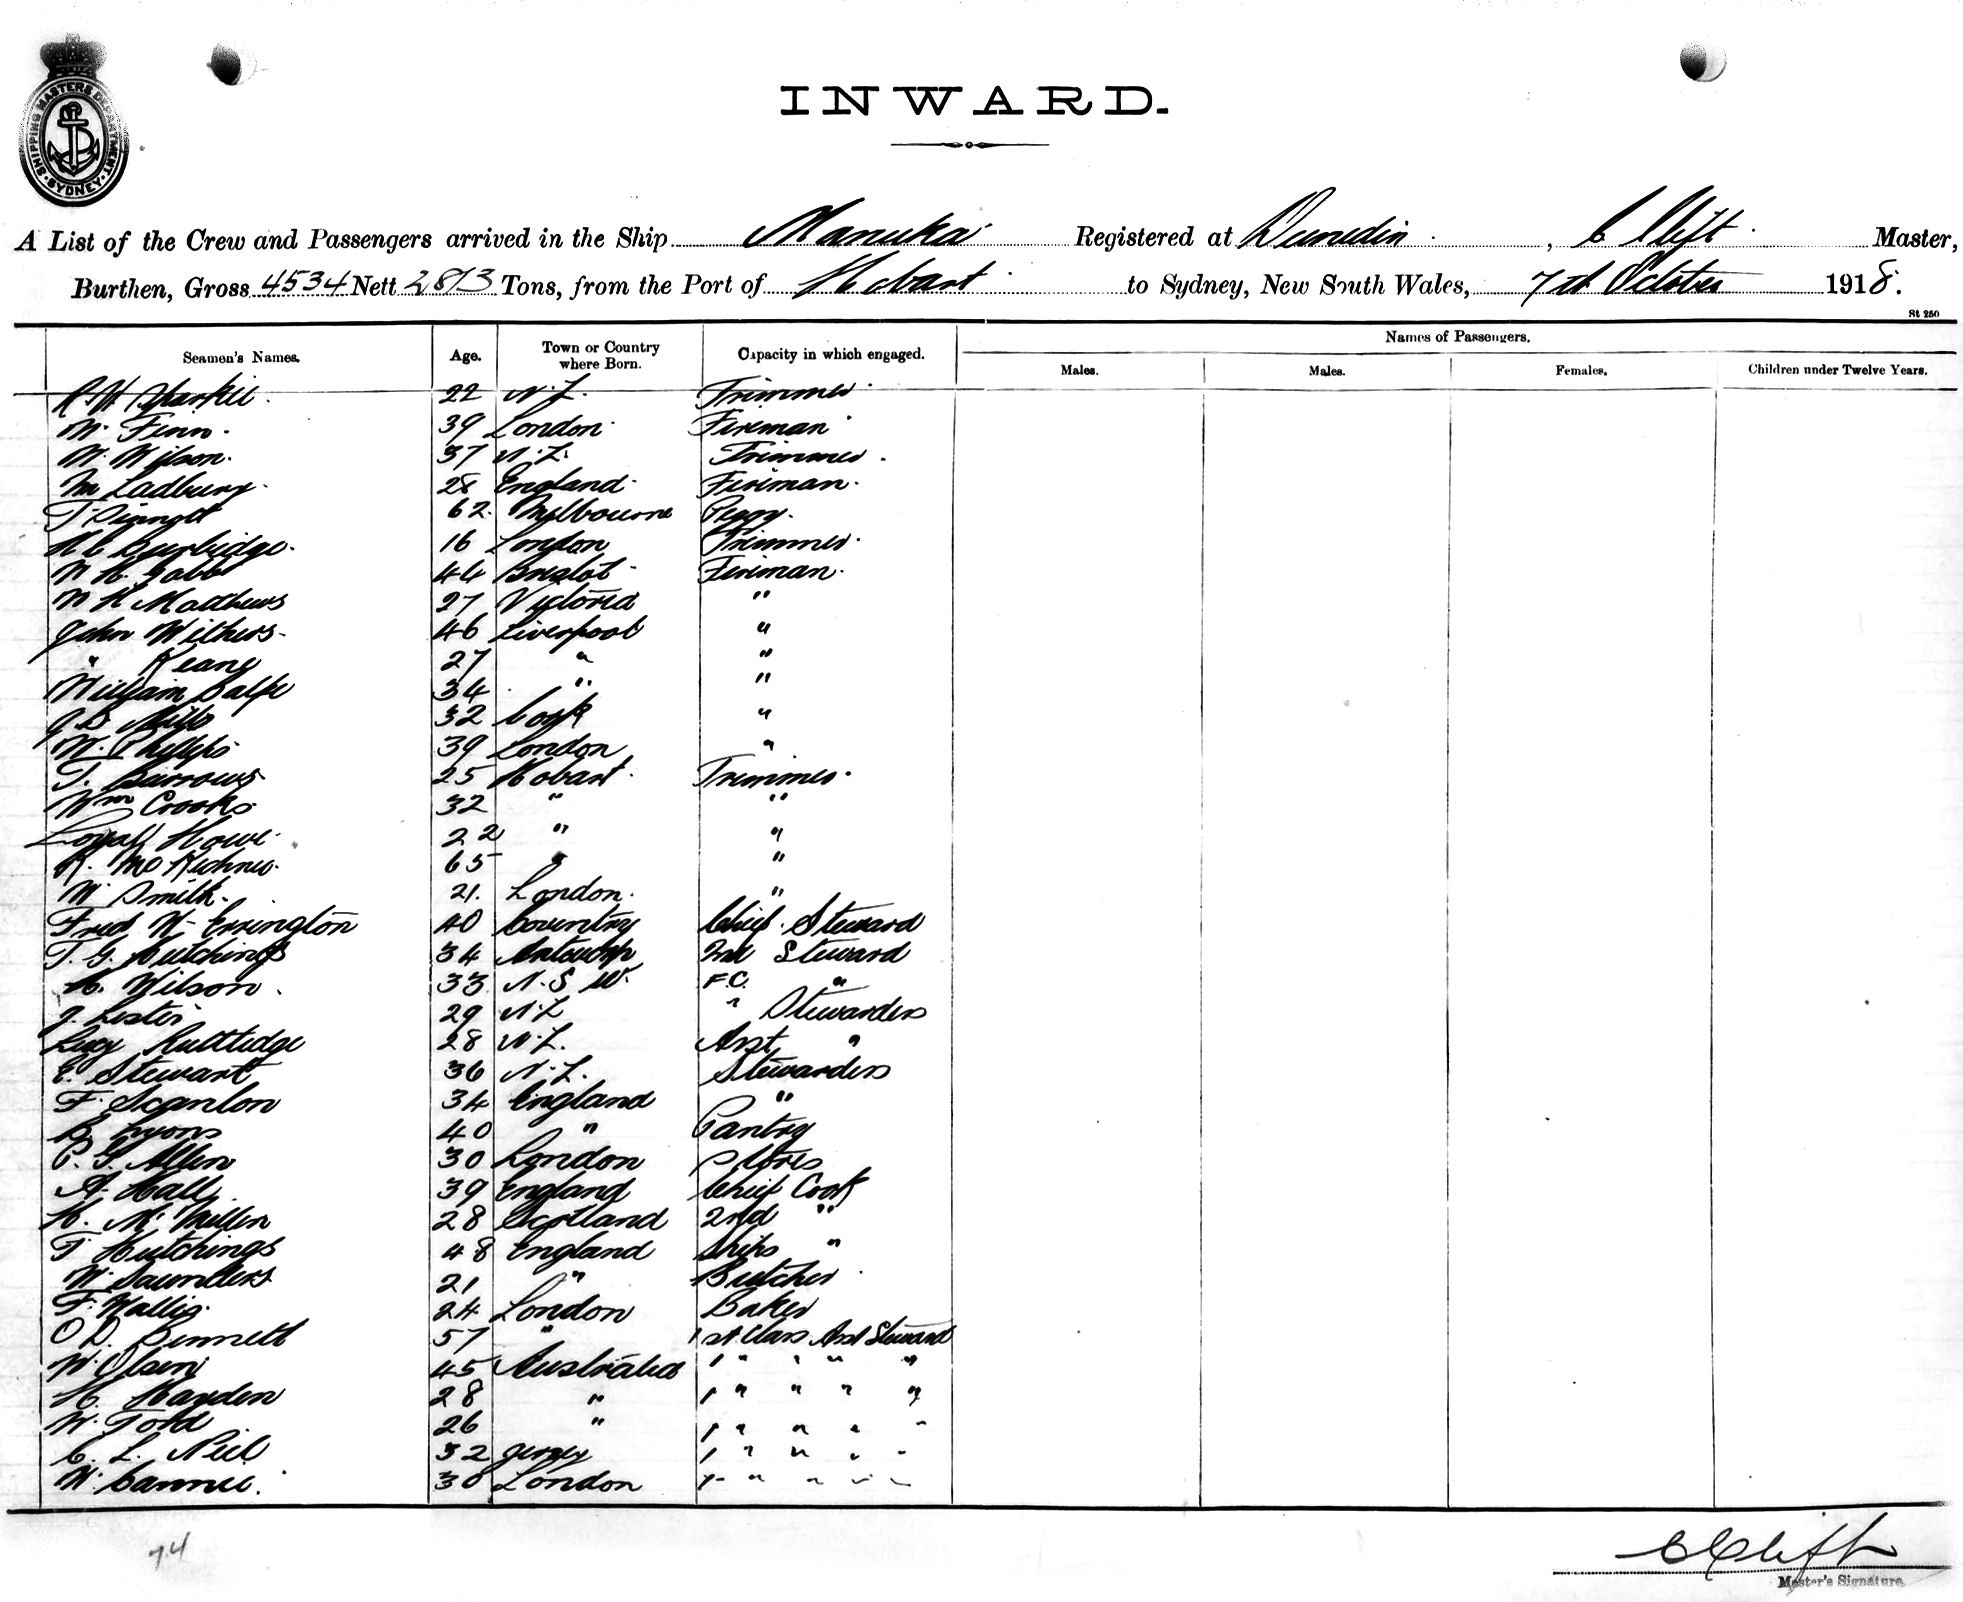 SHIPPING MASTERS DEPARTMENT
SYDNEY
INWARD.
A List of the Crew and Passengers arrived in the Ship Manuka Registered at Dunedin, C Clift Master,
Burthen, Gross 4534 Nett 2813 Tons, from the Port of Hobart to Sydney, New South Wales, 7th October 1918.
St 250
Seamen's Names. Age. Town or Country where Born. Capacity in which engaged. Names of Passengers.
Males. Males. Females. Children under Twelve Years.
22 N.Z. Trimmer
W. Finn. 39 London Fireman
W. Wilson. 37 N.Z. Trimmer.
M Ladbury. 28 England Fireman.
T 62 Melbourne Peggy.
H C Burbidge. 16 London Trimmer.
W H. Gabb 44 Bristol Fireman.
W H Matthews 27 Victoria "
John Withers 46 Liverpool "
" Keang 27 " "
William Balfe 34 " "
J. D. Mills 32 Cork "
W. Phillips 39 London "
T. Burrows 25 Hobart Trimmer.
Wm Crooks 32 " "
Loyall Howe 22 " "
R. 65 " "
W Smith. 21. London. "
Fred W Errington 40 Coventry Chief Steward
T. G. Hutchings 34 Antwerp 2nd Steward
A. Wilson. 33 N.S.W. F.C. "
J. Lester 29 N.Z " Stewardess
Lucy Ruttledge 28 N.Z. Asst "
E. Stewart 36 N.Z. Stewardess
F. Scanlon 34 England "
B Lyons 40 " Pantry
P. G. Allen 30 London Stores
A. Hall 39 England Chief Cook
H. McMillen 28 Scotland 2nd "
T Hutchings 48 England Ships "
W. Saunders 21 " Butcher
F. Wallis. 24 London Baker
O D. Bennett 57 " 1st Class Asst Steward
W. Olsen 45 Australia 1 " " " "
H. Hayden 28 " 1 " " " "
W. Todd 26 " 1 " " " "
C. L. Neil 32 Jersey 1 " " " "
W. 30 London 1 " " " "
74
C Clift
Master's Signature.